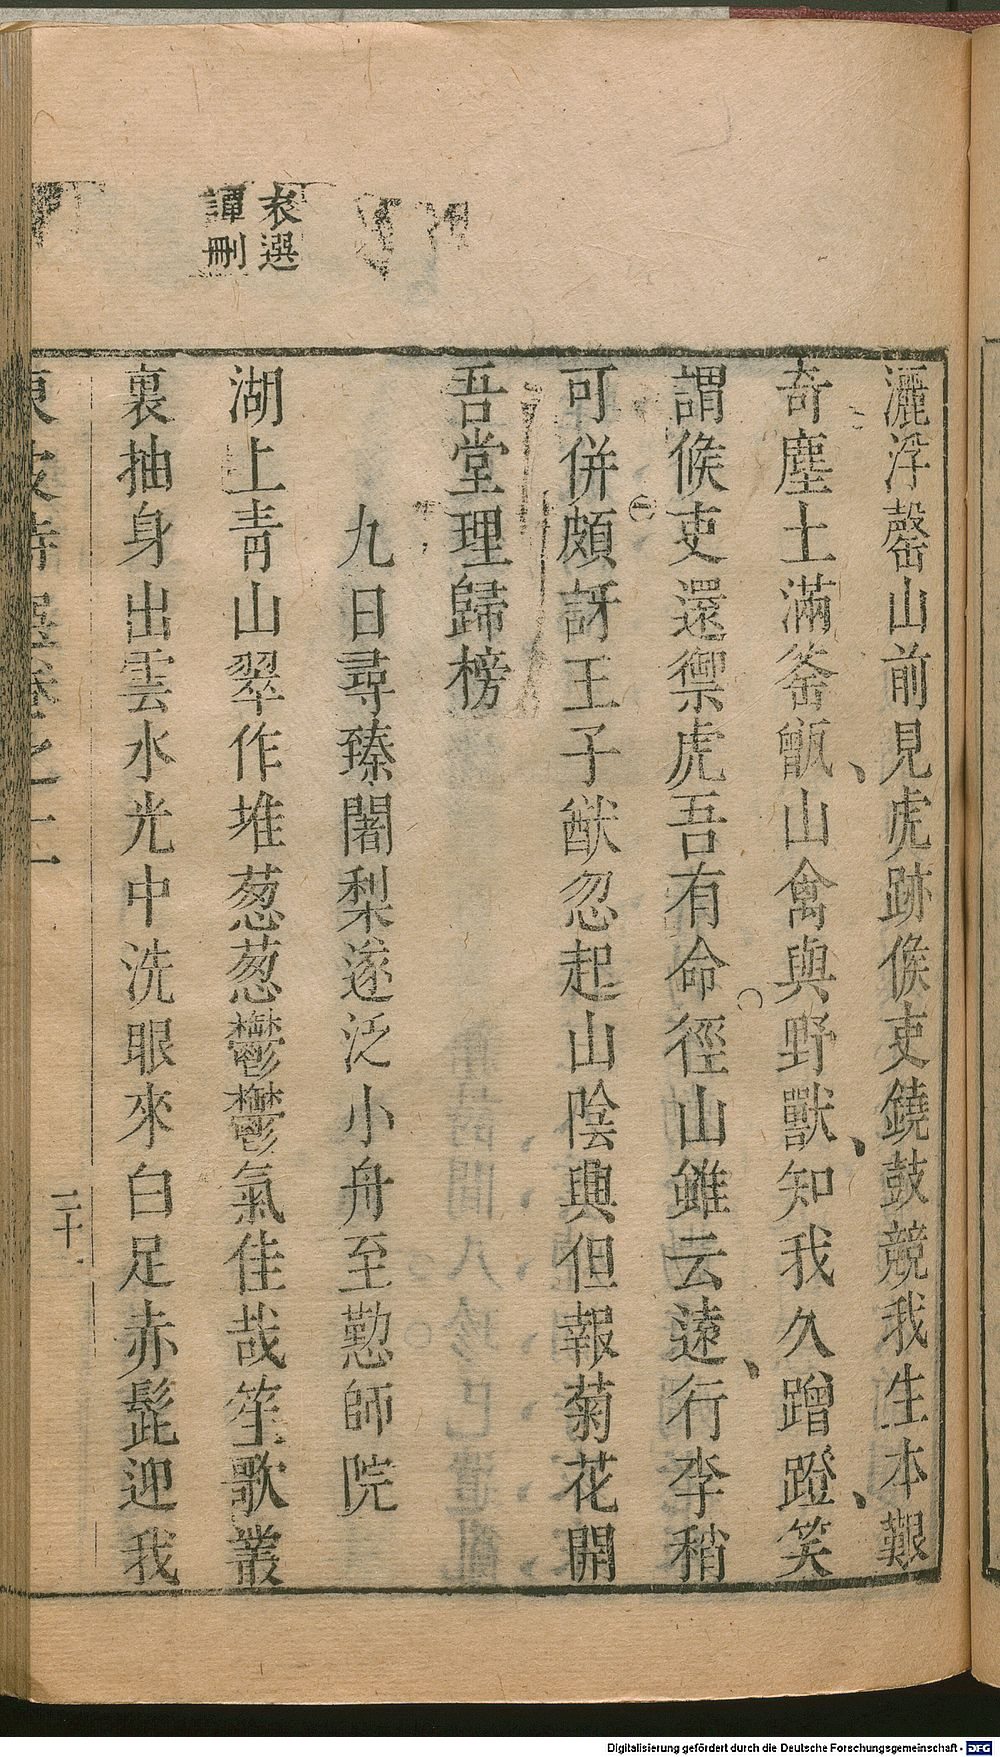 袁選
譚刪
灑浮罄山前見虎跡候吏鐃鼓競我生本艱
奇塵土滿釜甑山禽與野獸知我久蹭蹬笑
謂候吏還禦虎吾有命徑山雖云遠行李稍
可併頗訝王子猷忽起山陰興但報菊花開
吾堂理歸榜
九日尋臻闍梨遂泛小舟至懃師院
湖上青山翠作堆葱葱鬱鬱氣佳哉笙歌叢
裏抽身出雲水光中洗眼來白足赤髭迎我
東坡詩選卷之二
二十
Digitalisierung gefördert durch die Deutsche Forschungsgemeinschaft - DFG